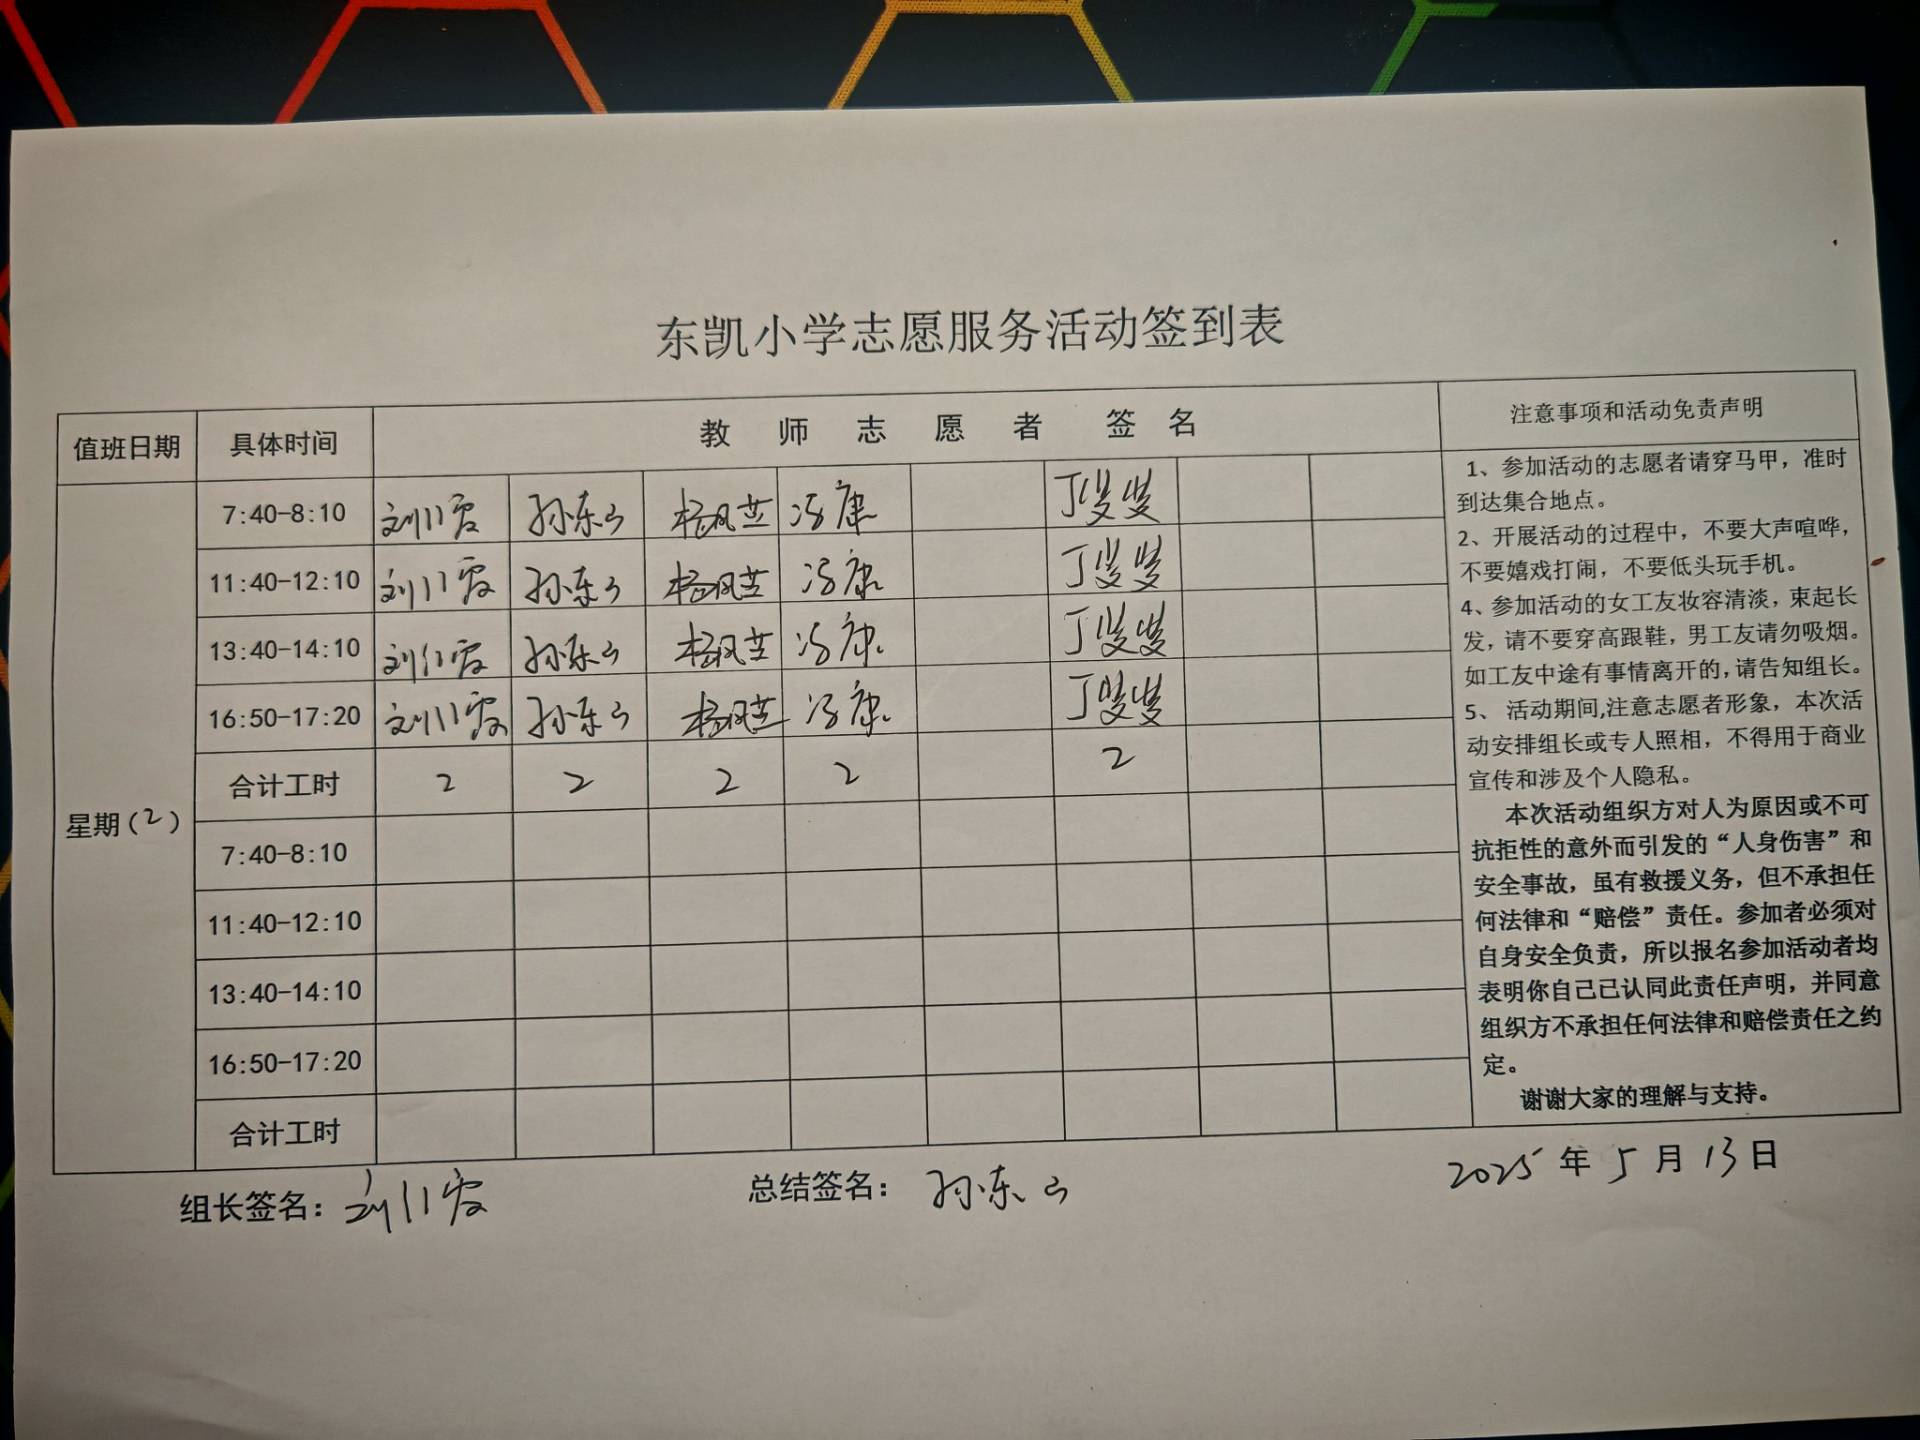 东凯小学志愿服务活动签到表
值班日期 具体时间 教师志愿者签名 注意事项和活动免责声明
7:40-8:10 刘川霞 孙东云 杨凤芸 冯康 丁雙雙
11:40-12:10 刘川霞 孙东云 杨凤芸 冯康 丁雙雙
13:40-14:10 刘川霞 孙东云 杨凤芸 冯康 丁雙雙
16:50-17:20 刘川霞 孙东云 杨凤芸 冯康 丁雙雙
合计工时 2 2 2 2 2
星期(2)
7:40-8:10
11:40-12:10
13:40-14:10
16:50-17:20
合计工时
1、参加活动的志愿者请穿马甲，准时
到达集合地点。
2、开展活动的过程中，不要大声喧哗，
不要嬉戏打闹，不要低头玩手机。
4、参加活动的女工友妆容清淡，束起长
发，请不要穿高跟鞋，男工友请勿吸烟。
如工友中途有事情离开的，请告知组长。
5、活动期间,注意志愿者形象，本次活
动安排组长或专人照相，不得用于商业
宣传和涉及个人隐私。
本次活动组织方对人为原因或不可
抗拒性的意外而引发的“人身伤害”和
安全事故，虽有救援义务，但不承担任
何法律和“赔偿”责任。参加者必须对
自身安全负责，所以报名参加活动者均
表明你自己已认同此责任声明，并同意
组织方不承担任何法律和赔偿责任之约
定。
谢谢大家的理解与支持。
组长签名：刘川霞 总结签名：孙东云 2025年5月13日